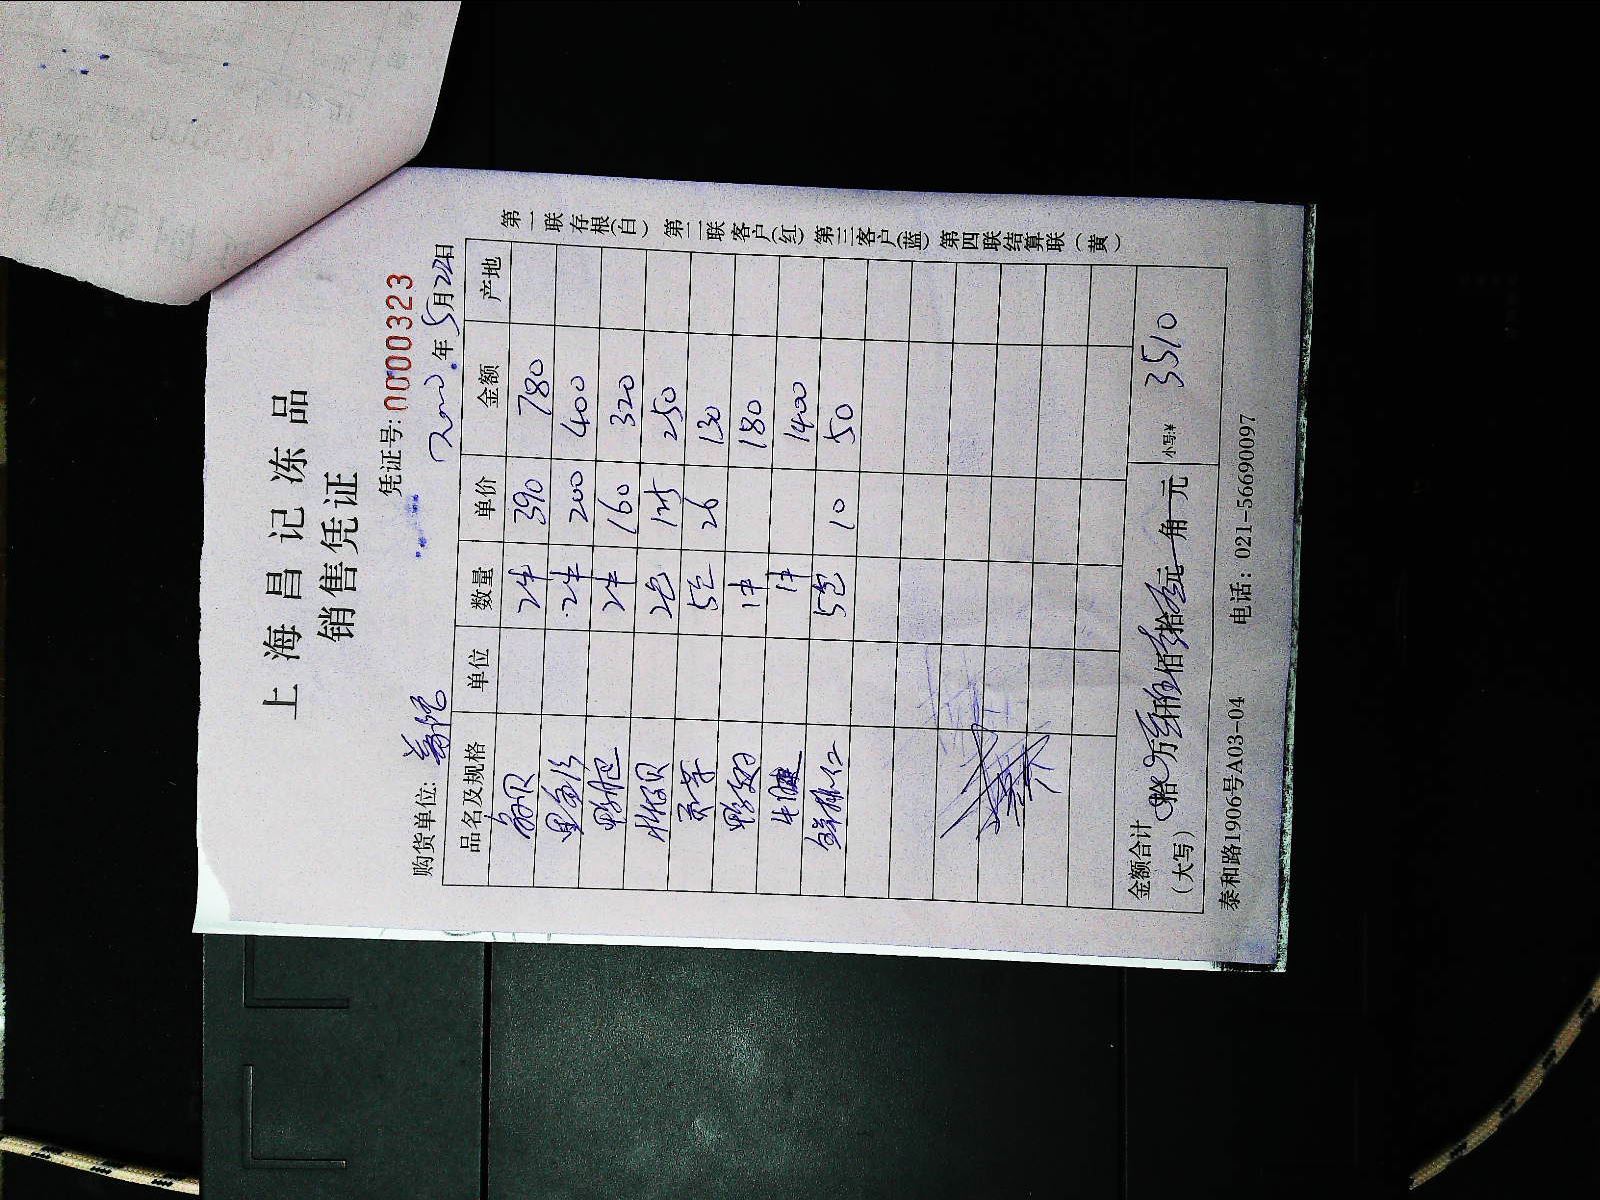 上海昌记冻品
销售凭证
凭证号: 0000323
购货单位: 年5月22日
品名及规格 单位 数量 单价 金额 产地
2件 390 780
2件 200 400
鸭肥 2件 160 320
2包 125 250
5包 26 130
鸭翅 1件 180
牛腱 1件 1400
5包 10 50
金额合计
(大写) 拾万仟伍佰拾元角元 小写:¥ 3510
泰和路1906号A03-04 电话: 021-56690097
第一联存根(白) 第二联客户(红) 第三客户(蓝) 第四联结算联(黄)